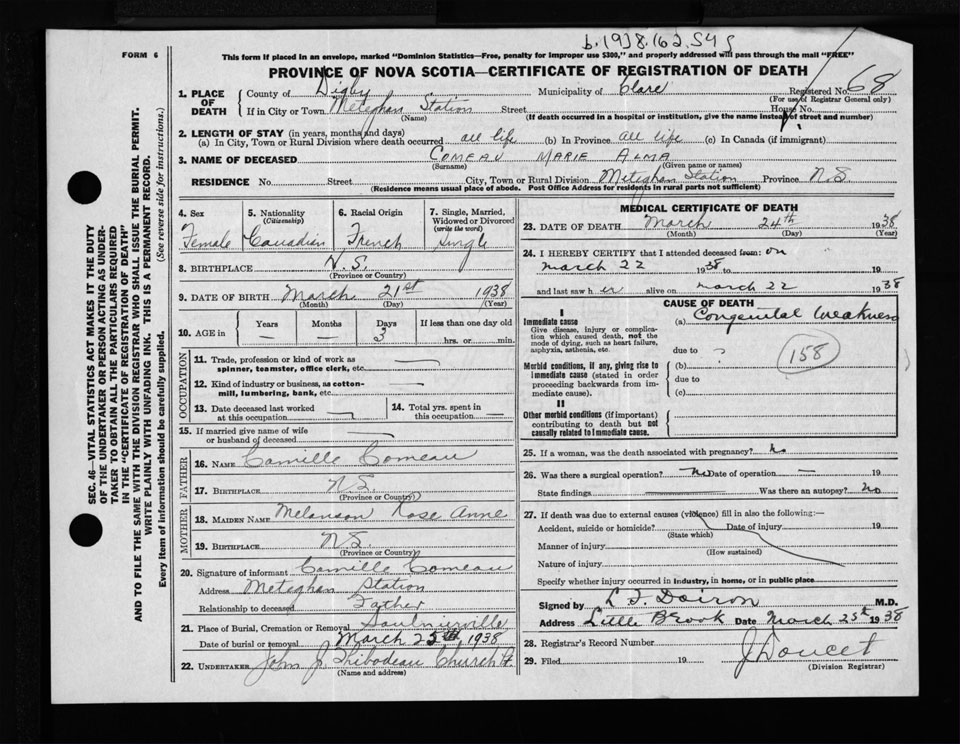 b. 1938.162548
FORM 6
This form if placed in an envelope, marked "Dominion Statistics—Free, penalty for improper use $300," and properly addressed will pass through the mail "FREE"
PROVINCE OF NOVA SCOTIA—CERTIFICATE OF REGISTRATION OF DEATH
1. PLACE OF DEATH County of Digby Municipality of Clare Registered No. 68
(For use of Registrar General only)
If in City or Town Meteghan Station Street House No.
(Name) (If death occurred in a hospital or institution, give the name instead of street and number)
2. LENGTH OF STAY (in years, months and days)
(a) In City, Town or Rural Division where death occurred all life (b) In Province all life (c) In Canada (if immigrant)
3. NAME OF DECEASED COMEAU MARIE ALMA
(Surname) (Given name or names)
RESIDENCE No. Street City, Town or Rural Division Meteghan Station Province N.S.
(Residence means usual place of abode. Post Office Address for residents in rural parts not sufficient)
4. Sex 5. Nationality (Citizenship) 6. Racial Origin 7. Single, Married, Widowed or Divorced (write the word)
Female Canadian French Single
8. BIRTHPLACE N.S.
(Province or Country)
9. DATE OF BIRTH March 21st 1938
(Month) (Day) (Year)
10. AGE in Years Months Days If less than one day old
— — 3 hrs. or min.
OCCUPATION
11. Trade, profession or kind of work as spinner, teamster, office clerk, etc. —
12. Kind of industry or business, as cotton-mill, lumbering, bank, etc. —
13. Date deceased last worked at this occupation — 14. Total yrs. spent in this occupation —
15. If married give name of wife or husband of deceased —
FATHER
16. NAME Camille Comeau
17. BIRTHPLACE N.S.
(Province or Country)
MOTHER
18. MAIDEN NAME Melanson Rose Anne
19. BIRTHPLACE N.S.
(Province or Country)
20. Signature of informant Camille Comeau
Address Meteghan Station
Relationship to deceased Father
21. Place of Burial, Cremation or Removal Saulnierville
Date of burial or removal March 25th, 1938
22. UNDERTAKER John J. Thibodeau Church Pt.
(Name and address)
MEDICAL CERTIFICATE OF DEATH
23. DATE OF DEATH March 24th 1938
(Month) (Day) (Year)
24. I HEREBY CERTIFY that I attended deceased from: on
March 22 1938 to 19
and last saw her alive on March 22 1938
CAUSE OF DEATH
I
Immediate cause (a) Congenital Weakness
Give disease, injury or complication which caused death, not the mode of dying, such as heart failure, asphyxia, asthenia, etc.
due to ?
158
Morbid conditions, if any, giving rise to immediate cause (stated in order proceeding backwards from immediate cause).
(b)
due to
(c)
II
Other morbid conditions (if important) contributing to death but not causally related to immediate cause.
25. If a woman, was the death associated with pregnancy? No
26. Was there a surgical operation? No Date of operation — 19
State findings Was there an autopsy? No
27. If death was due to external causes (violence) fill in also the following:—
Accident, suicide or homicide? Date of injury 19
(State which)
Manner of injury
(How sustained)
Nature of injury
Specify whether injury occurred in industry, in home, or in public place
Signed by L F Doiron M.D.
Address Little Brook Date March 25th 1938
28. Registrar's Record Number
29. Filed 19 J Doucet
(Division Registrar)
SEC. 46—VITAL STATISTICS ACT MAKES IT THE DUTY
OF THE UNDERTAKER OR PERSON ACTING AS UNDER-
TAKER TO OBTAIN ALL THE PARTICULARS REQUIRED
IN THE "CERTIFICATE OF REGISTRATION OF DEATH"
AND TO FILE THE SAME WITH THE DIVISION REGISTRAR WHO SHALL ISSUE THE BURIAL PERMIT.
WRITE PLAINLY WITH UNFADING INK. THIS IS A PERMANENT RECORD.
Every item of information should be carefully supplied. (See reverse side for instructions.)